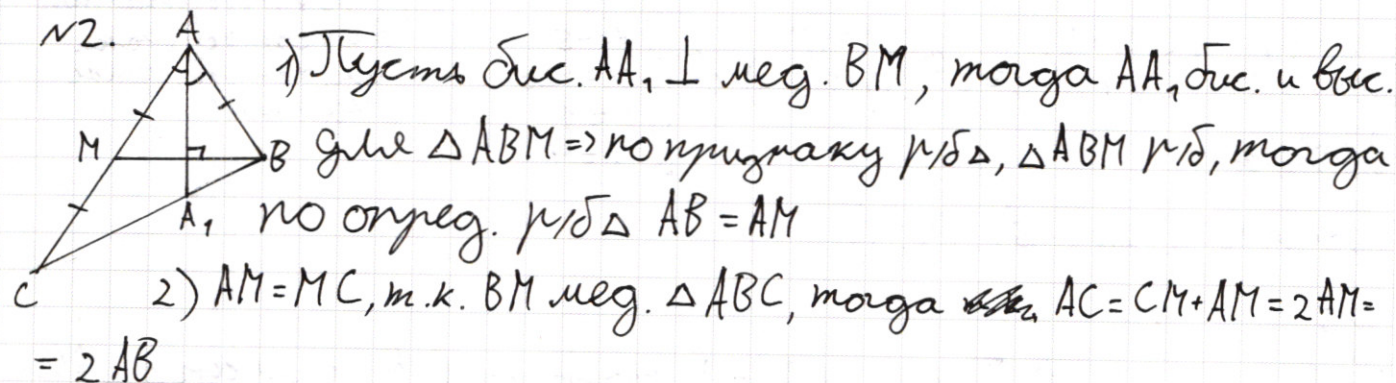 №2.
A
1) Пусть бис. AA₁ ⊥ мед. BM, тогда AA₁ бис. и выс.
M
B
для △ABM => по признаку р/б△, △ABM р/б, тогда
A₁
по опред. р/б△ AB = AM
C
2) AM = MC, т.к. BM мед. △ABC, тогда AC = CM + AM = 2AM =
= 2AB